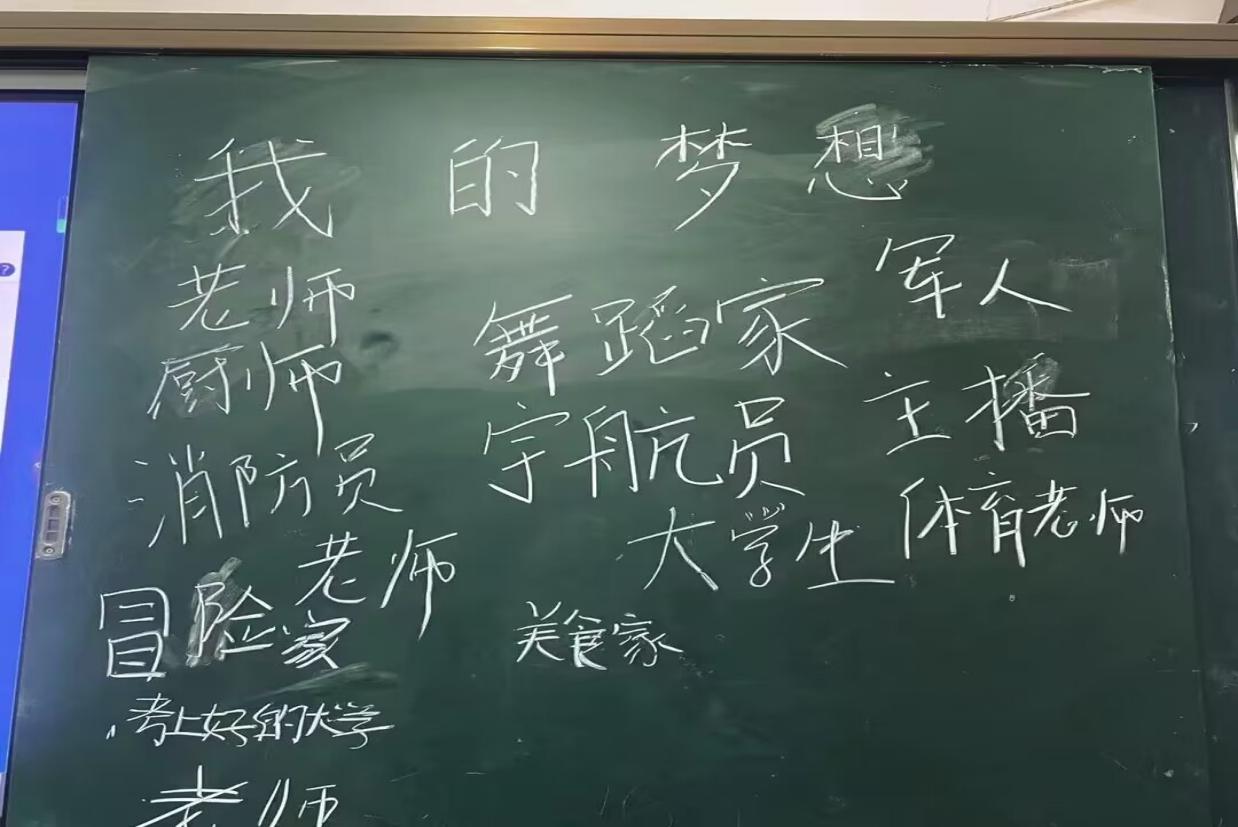 我的梦想
老师
厨师
消防员
老师
冒险家
考上好的大学
老师
舞蹈家
宇航员
大学生
美食家
军人
主播
体育老师
?